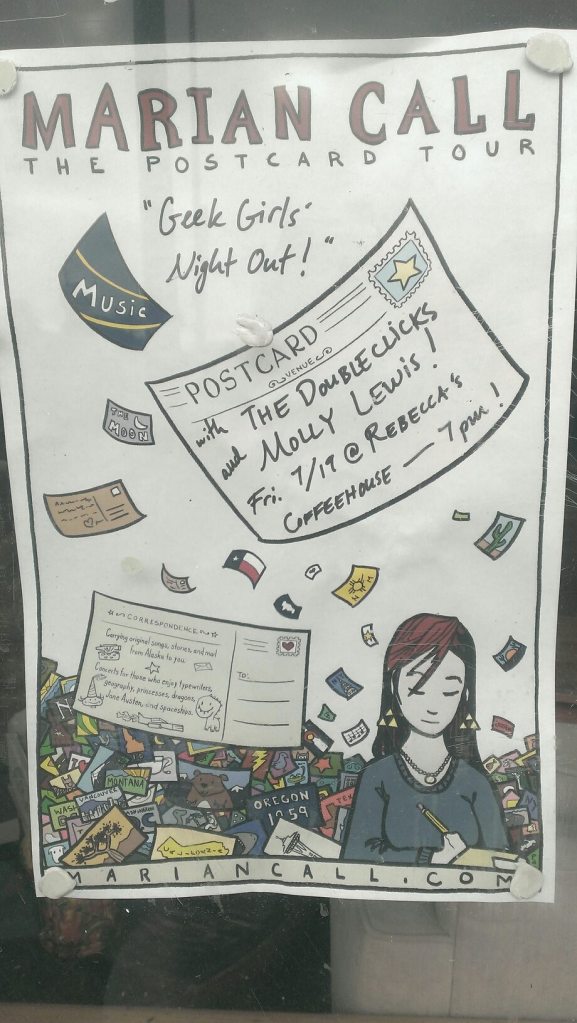 MARIAN CALL
THE POSTCARD TOUR
"Geek Girls'
Night Out!"
MUSIC
POSTCARD
VENUE
with THE DOUBLECLICKS
and MOLLY LEWIS!
Fri. 7/19 @ REBECCA'S
COFFEEHOUSE — 7pm!
THE
MOON
CORRESPONDENCE
Carrying original songs, stories, and mail
from Alaska to you.
Concerts for those who enjoy typewriters,
geography, princesses, dragons,
Jane Austen, and spaceships.
TO:
MONTANA
VANCOUVER
WASH
OREGON
1859
TE
MARIANCALL.COM